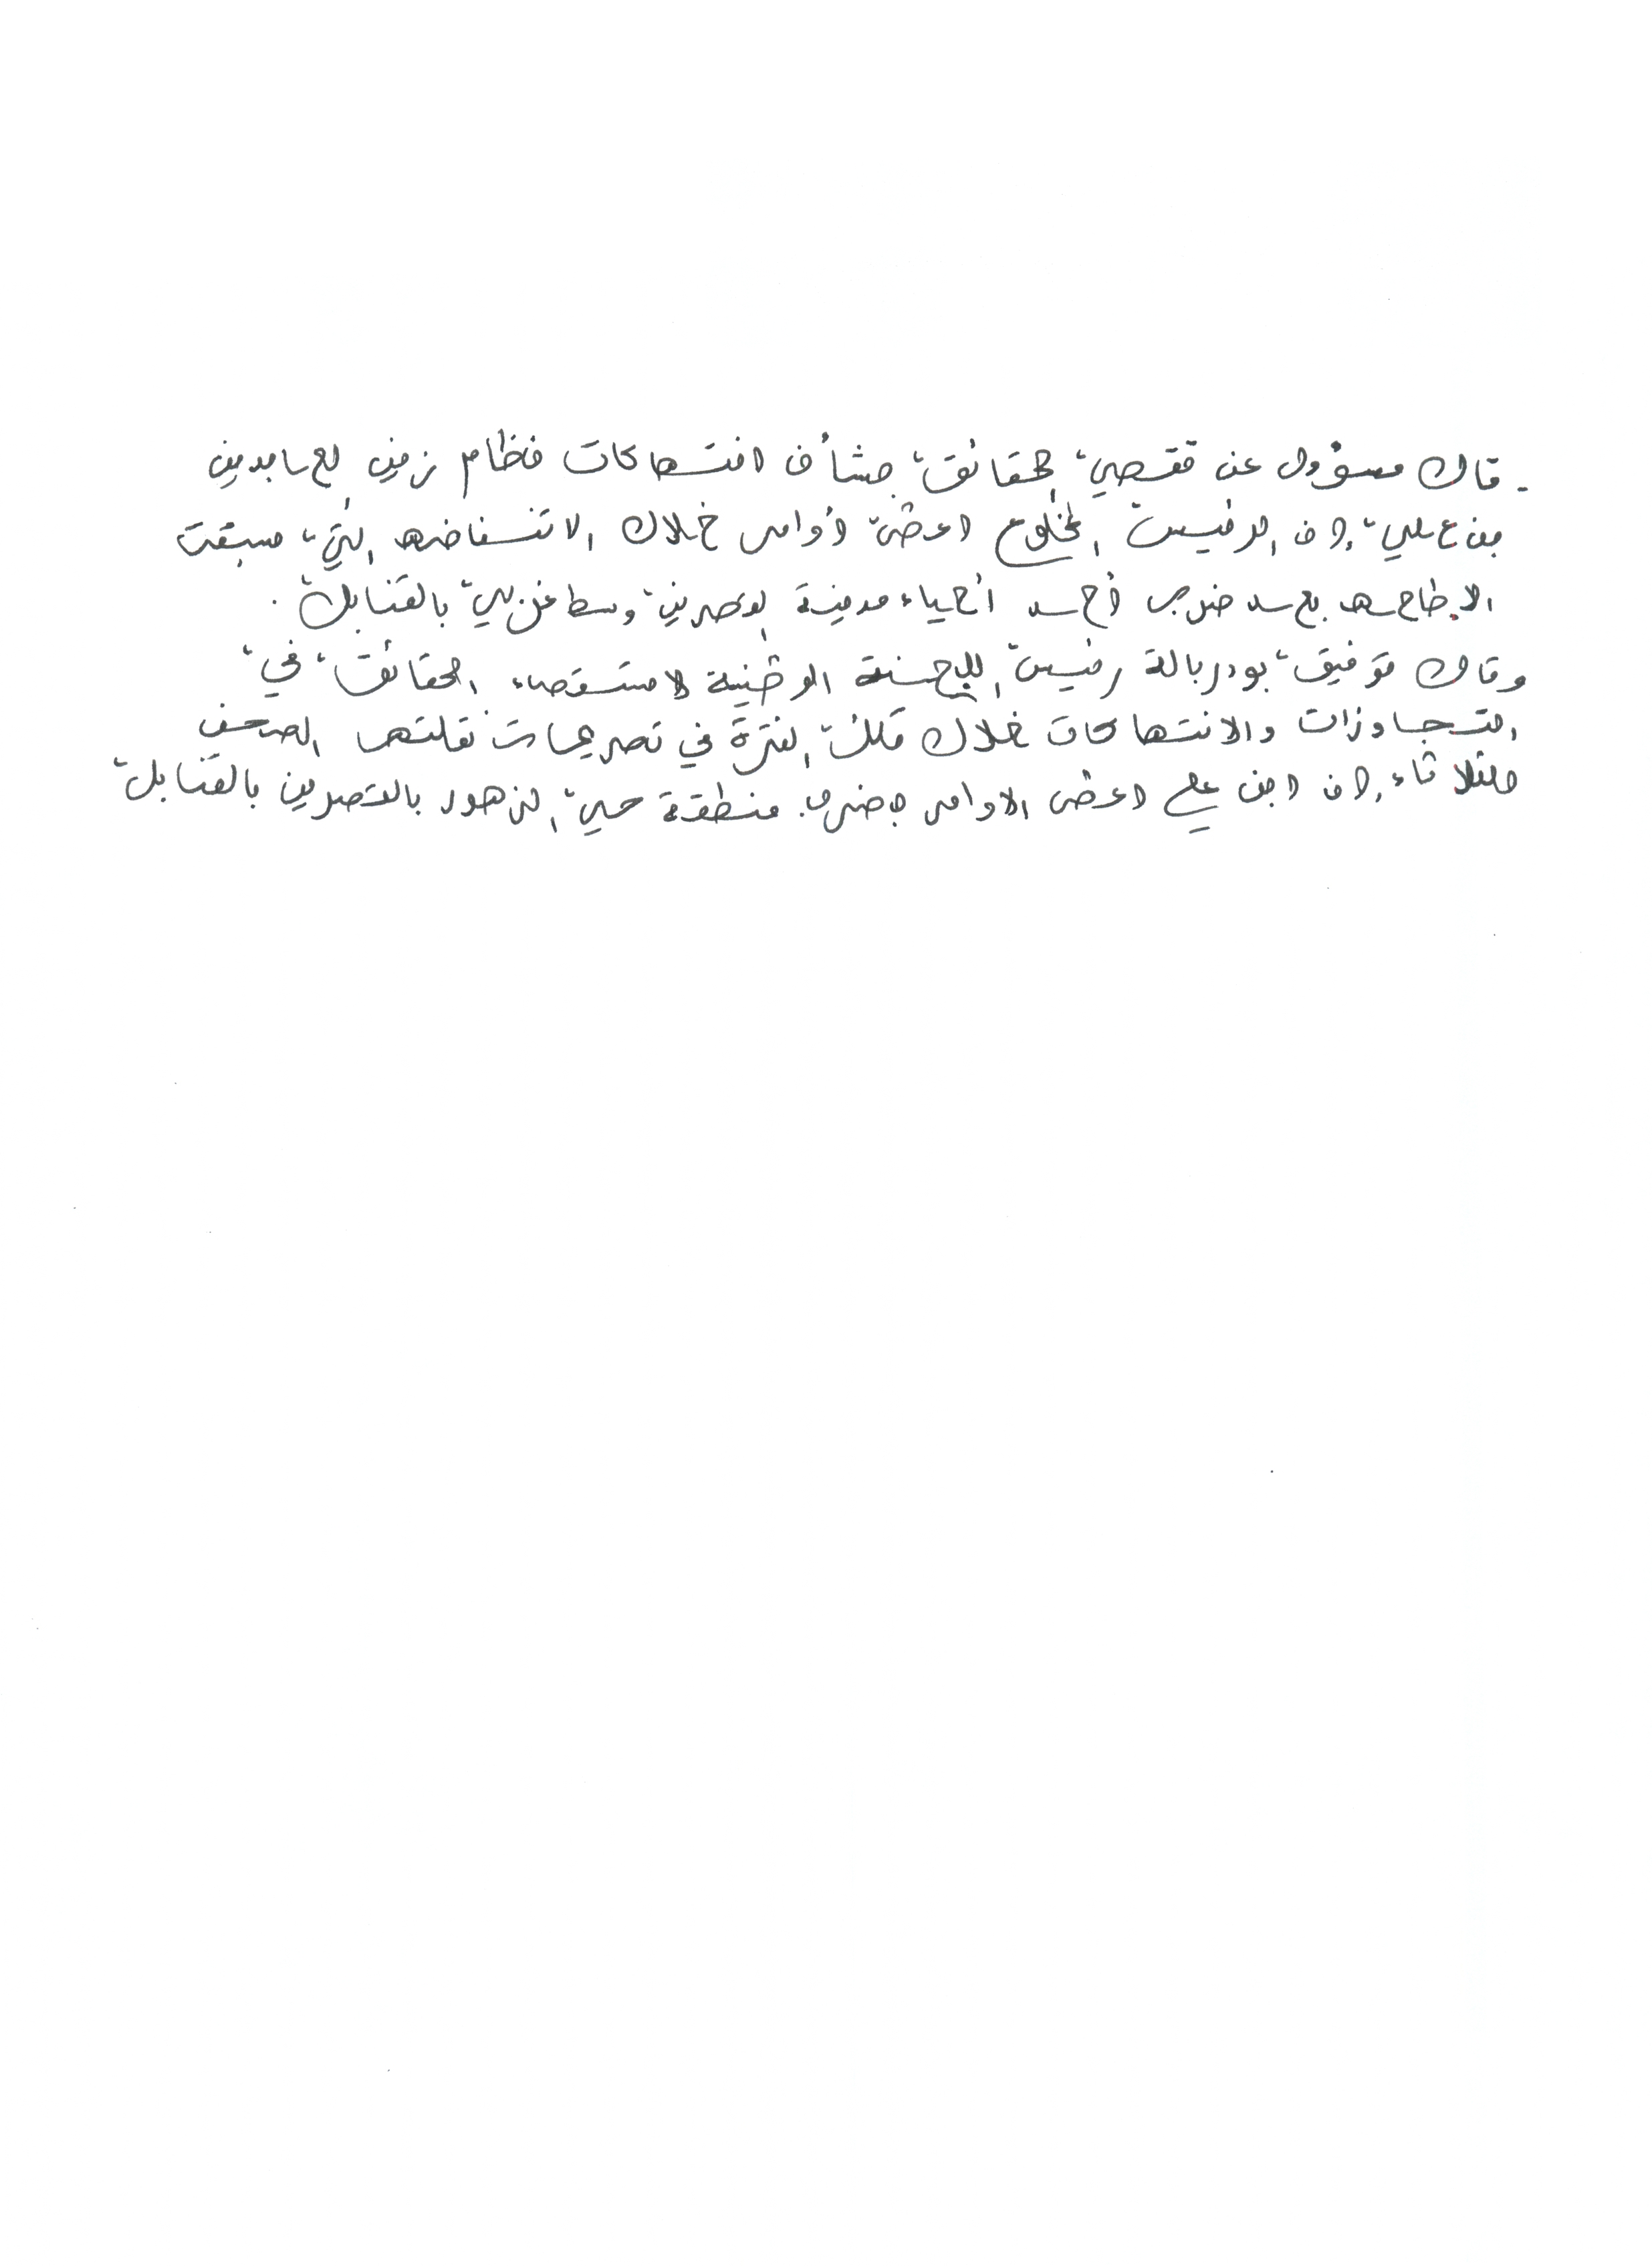 قال مسؤول عن تقصي الحقائق بشأن انتهاكات نظام زين العابدين
بن علي إن الرئيس المخلوع اعطى أوامر خلال الانتفاضه التي سبقت
الاطاحه بعد ضرب أحد أحياء مدينة القصرين وسط غربي بالقنابل.
وقال توفيق بودربالة رئيس اللجنة الوطنية لاستقصاء الحقائق في
التجاوزات والانتهاكات خلال تلك الفترة في تصريحات نقلتها الصحف
الثلاثاء إن ابن علي اعطى الاوامر بضرب منطقة حي الزهور بالقصرين بالقنابل